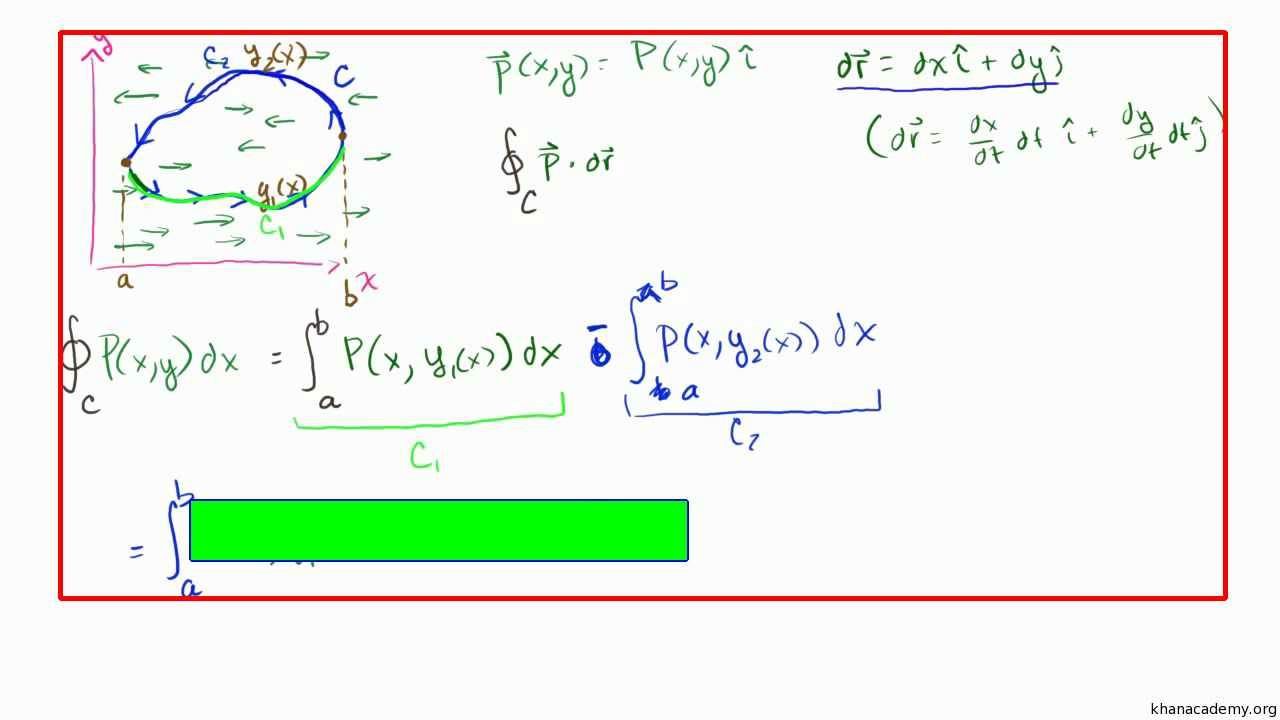 y
C₂ y₂(x)
C
y₁(x)
C₁
a
b x
P⃗(x,y) = P(x,y) î
dr⃗ = dx î + dy ĵ
(dr⃗ = dx/dt dt î + dy/dt dt ĵ)
∮_C P⃗ · dr⃗
∮_C P(x,y) dx = ∫_a^b P(x, y₁(x)) dx - ∫_a^b P(x, y₂(x)) dx
C₁
C₂
= ∫_a^b
khanacademy.org